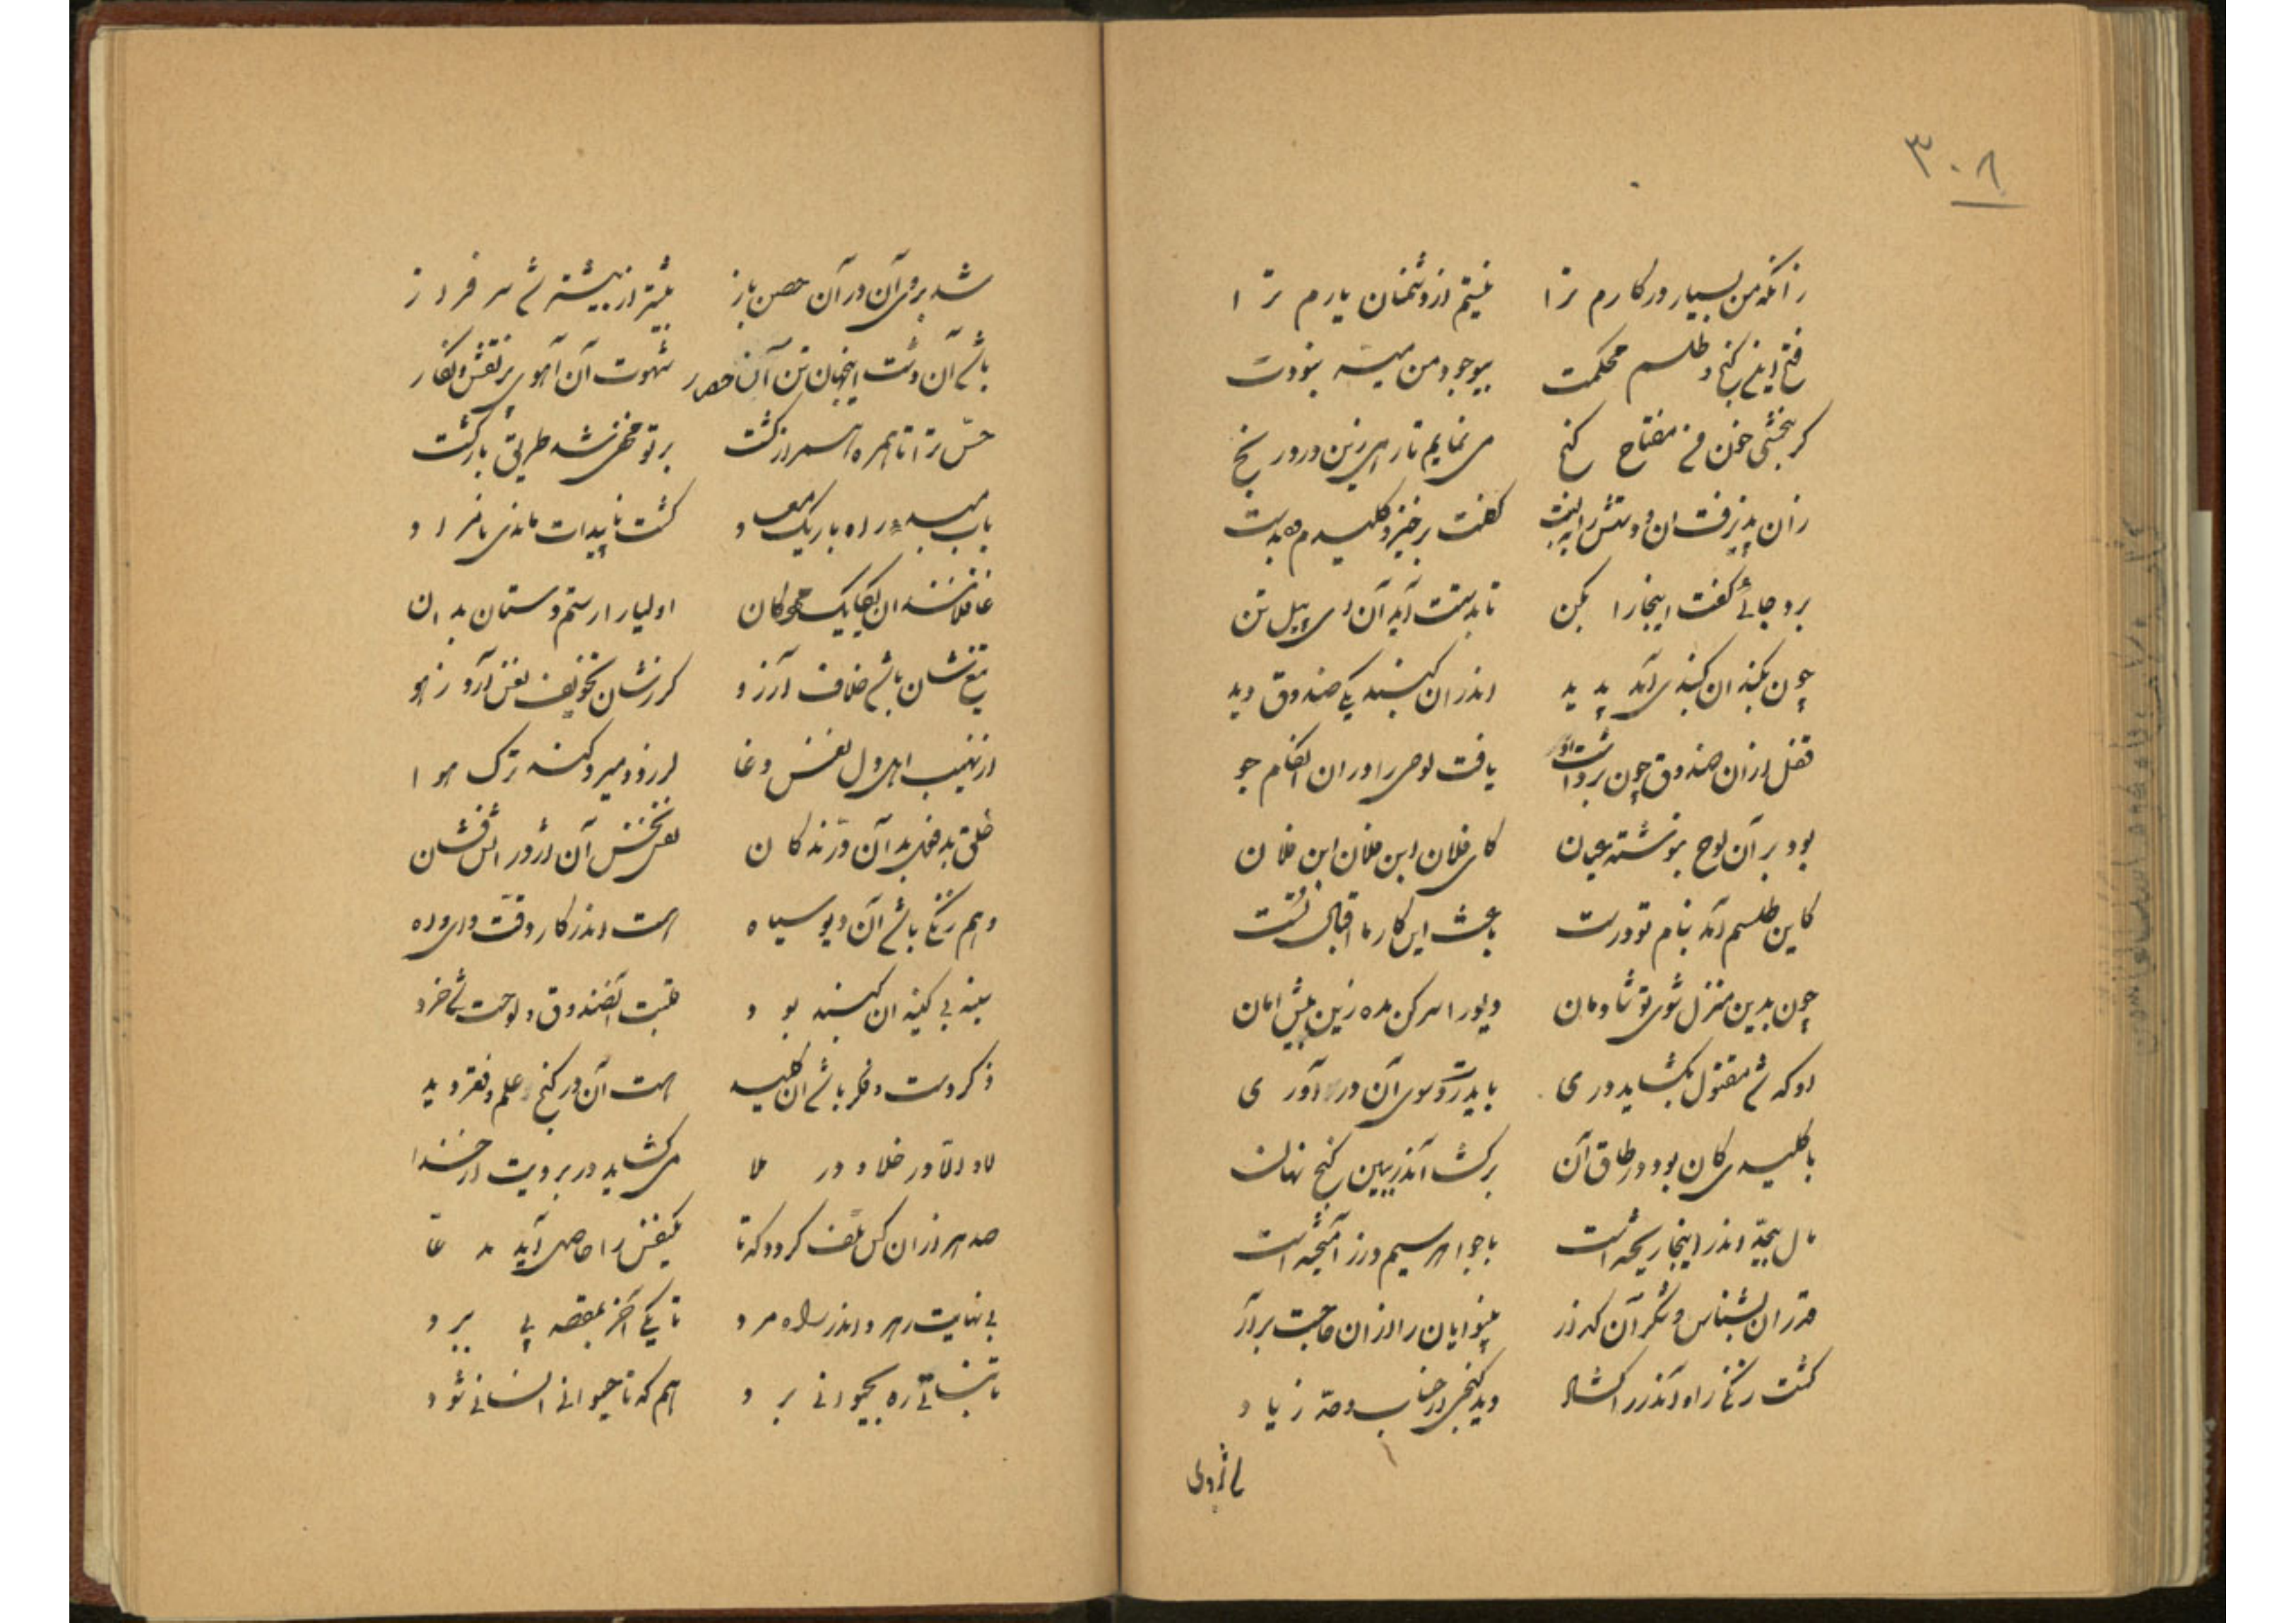 ۳۰۸
زانکه من بسیار در کارم ترا نیستم از دشمنان یارم ترا
فتح این گنج و طلسم محکمت بیوجود من میسر نبودت
گر ببخشی خون من مفتاح گنج می نمایم تا رهی زین درد و رنج
زان پذیرفت ان و دستش را گفت برخیز و کلیدم ده بدست
برد جائی گفت اینجا را بکن تا بدستت آید آن ای پیل تن
چون بکند ان گنبدی آمد پدید اندران گنبد یکی صندوق دید
قفل از ان صندوق چون برداشت او یافت لوحی را در ان
بود بر آن لوح بنوشته عیان کای فلان ابن فلان ابن فلان
کاین طلسم آمد بنام تو درست باعث این کارها اقبال تست
چون بدین منزل شوی تو شادمان دیو را سر کن مده زین بیش امان
او که شد مقتول بگشاید دری باید رو سوی آن در آوری
با کلیدی کان بود در طاق آن برگشا آندر ببین گنج نهان
مال بیحد اندر اینجا ریخته است با جواهر سیم و زر آمیخته است
قدر ان بشناس و شکر آن گذار بینوایان را از ان حاجت برآر
گشت زنگی را و آندر را گشاد دید گنجی از حساب و حد زیاد
شد بروی آن در آن حصن باز بیشتر از بیشتر شد سرفراز
باشد آن دشت اینجهان تن آن حصار شهوت آن آهوی پر نقش و نگار
حس ترا تا همره از گشت بر تو مخفی شد طریق بازگشت
باب در راه باریک گشت ناپیدات ماندی نامراد
غافلانند ان یکایک اولیا را رستم دستان بدان
تیغشان باشد خلاف آرزو گرزشان تخویف نفس آرد ز هو
از نهیب اهل دل نفس دغا لرزد و میرد کند ترک هوا
خلق بد آن درندگان نفس آن اژدر اتش فشان
وهم زنگی باشد آن دیو سیاه هست اندر کار دقت داده
سینه بی کینه ان گنبد بود قلبت آنصندوق و لوحت شد خرد
ذکر و فکر باشد ان کلید هست آن در گنج علم و فقر دید
لا و الا در خلا و در ملا می گشاید در برویت از خدا
صد هزاران کس تلف گردد که تا یکنفس را حاصل آید مدعا
بی نهایت رهرو اندر راه مرد تا یکی آخر بمقصد پی ببرد
تا نباتی ره بحیوانی برد هم که تا حیوانی انسانی شود